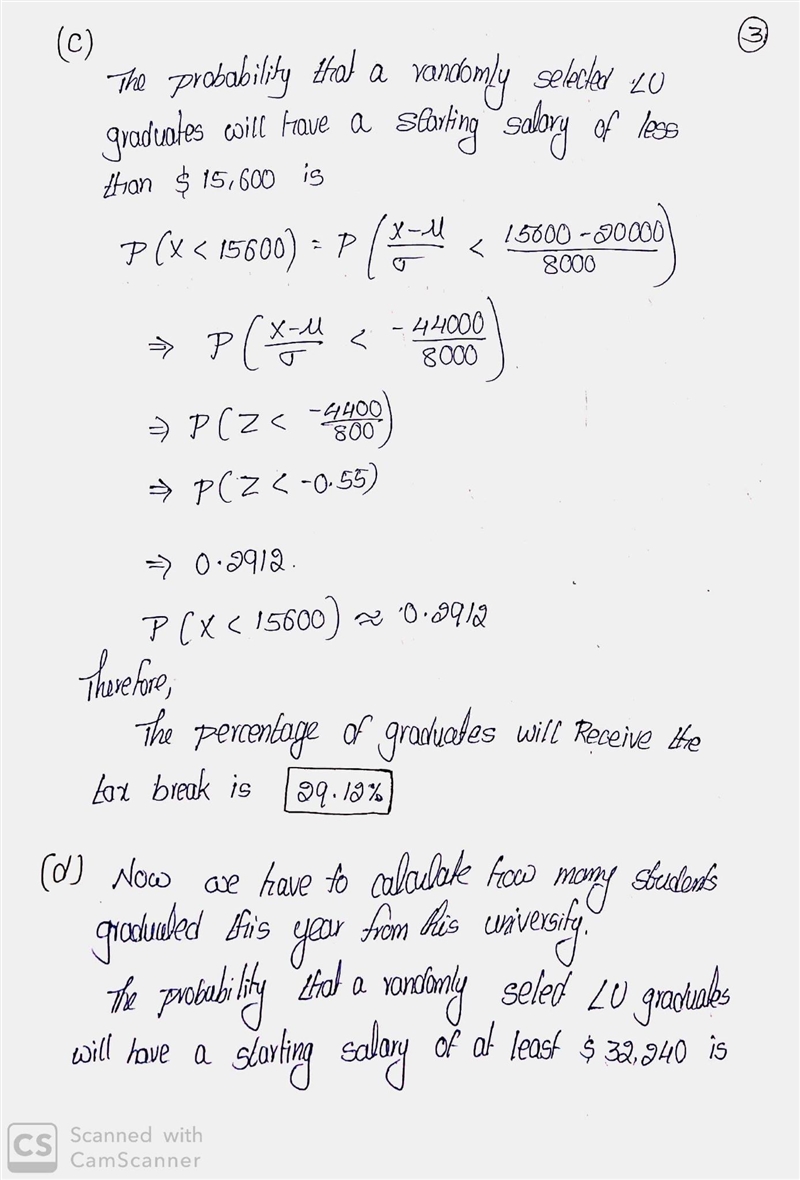 (c)
3
The probability that a randomly selected LU
graduates will have a starting salary of less
than $ 15,600 is
P(X < 15600) = P ( X-μ / σ < 15600 - 20000 / 8000 )
⇒ P ( X-μ / σ < - 44000 / 8000 )
⇒ P(Z < -4400 / 800 )
⇒ P(Z < -0.55)
⇒ 0.2912.
P(X < 15600) ≈ 0.2912
Therefore,
The percentage of graduates will Receive the
tax break is 29.12%
(d) Now we have to calculate how many students
graduated this year from this university.
The probability that a randomly seled LU graduates
will have a starting salary of at least $ 32,240 is
CS Scanned with
CamScanner